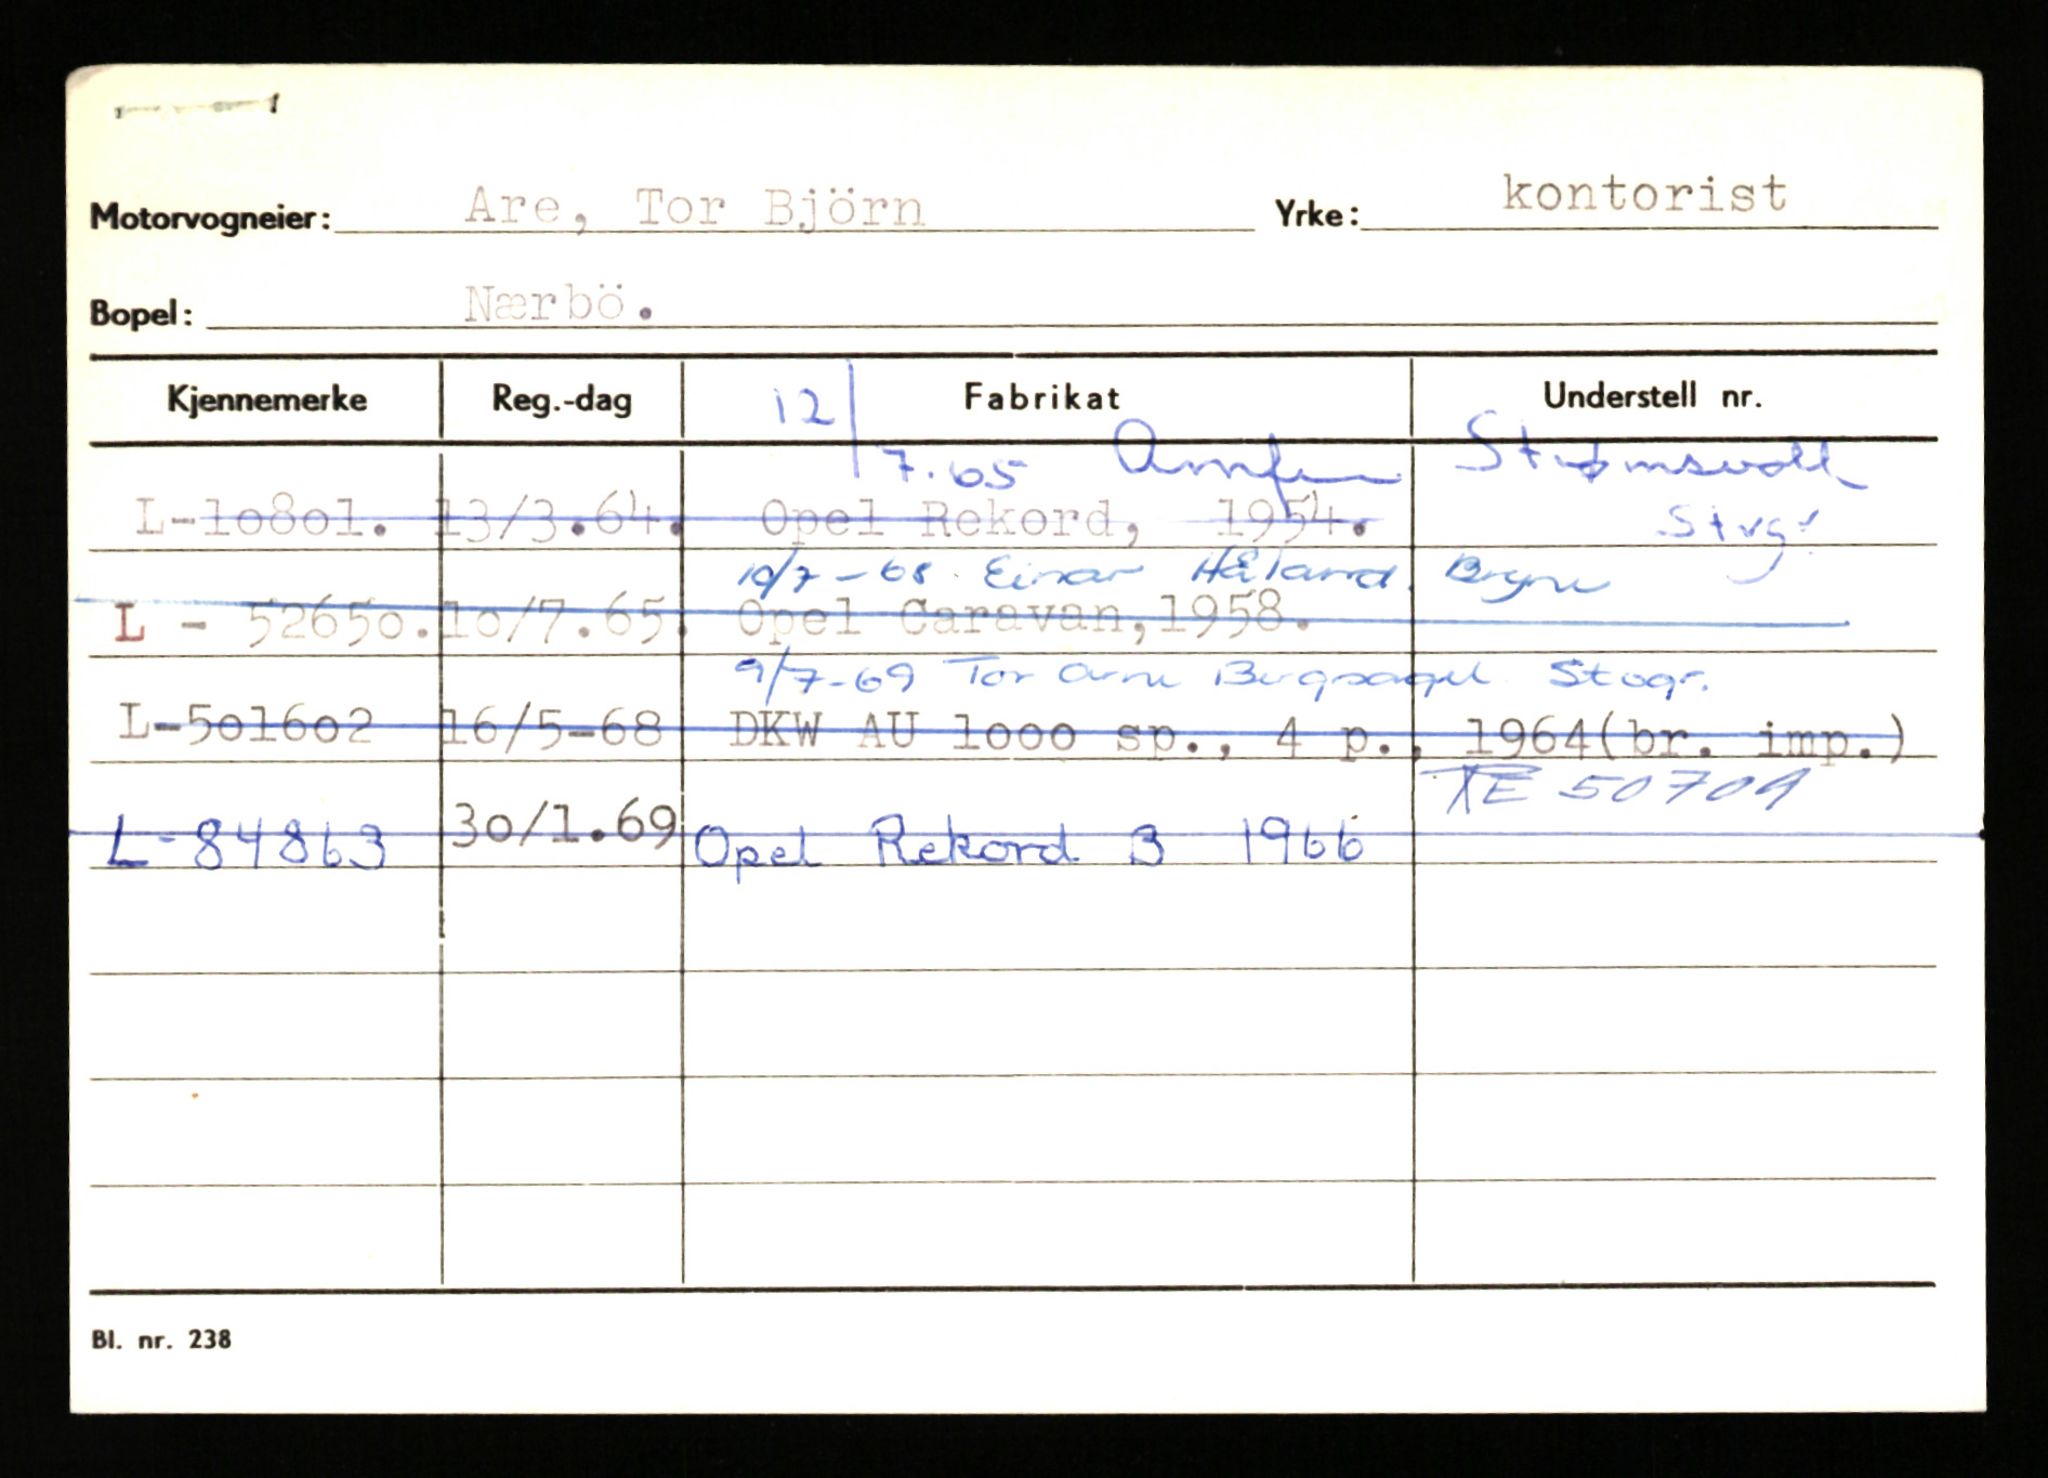 Motorvogneier: Are, Tor Björn Yrke: kontorist
Bopel: Nærbö.
Kjennemerke Reg.-dag Fabrikat Understell nr.
12/7.65 Strømsvoll
L-10801. 13/3.64. Opel Rekord, 1954. Stvgr
10/7-68 Einar Håland. Bryne
L - 52650. 10/7.65. Opel Caravan, 1958.
9/7-69 Tor Arne Bergsagel Stvgr.
L-501602 16/5-68 DKW AU 1000 sp., 4 p., 1964(br. imp.)
50709
L-84863 30/1.69 Opel Rekord B 1966
Bl. nr. 238